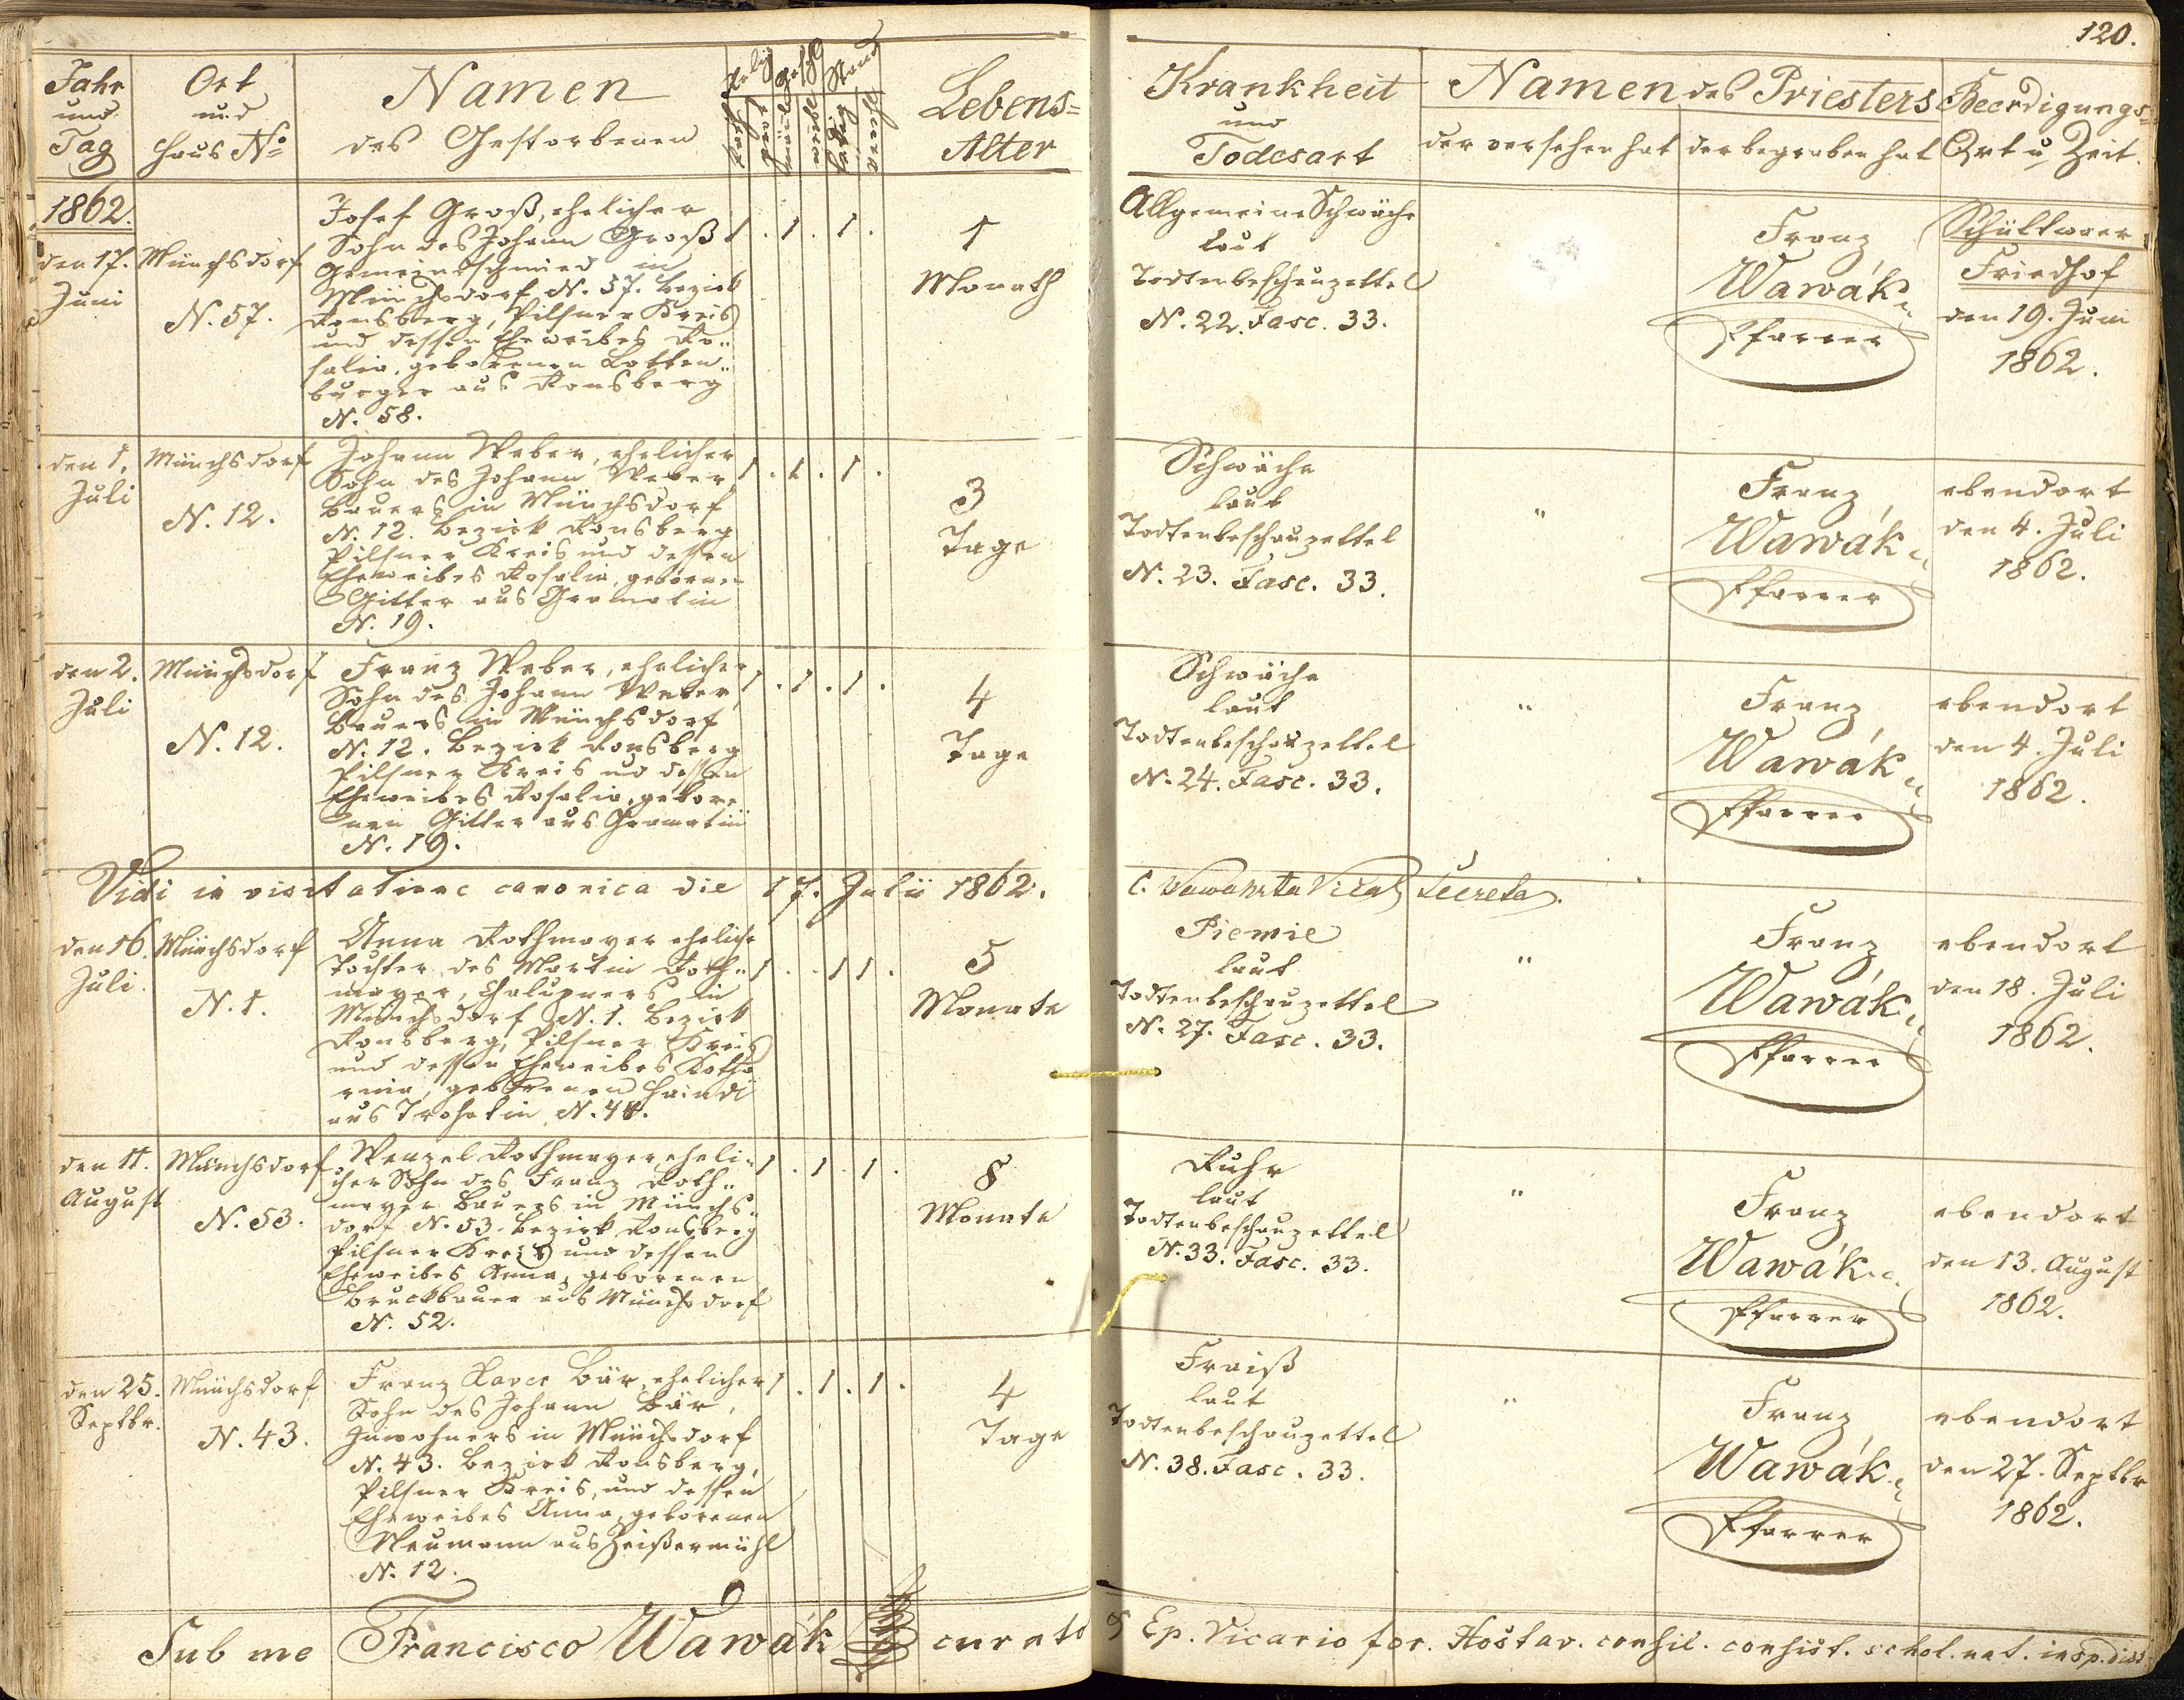 120.
Jahr
und
Tag
Ort
und
Haus No
Namen
des Gestorbenen
Relig
Geschl
Stand
kathol
prot
männl
weibl
ledig
verh
Lebens=
Alter
Krankheit
und
Todesart
Namen des Priesters
der versehen hat
der begraben hat
Beerdigungs=
Ort u Zeit.
1862.
den 17.
Juni
Münchsdorf
N. 57.
Josef Groß, ehelicher
Sohn des Johann Groß
Gemeindschmied in
Münchsdorf N. 57. Bezirk
Ronsberg, Pilsner Kreis
und dessen Eheweibes Ro„
salia, geborenen Botten„
burger aus Ronsberg
N. 58.
1 . 1 . 1 .
1
Monath
Allgemeine Schwäche
laut
Todtenbeschauzettel
N. 22. Fasc. 33.
Franz
Wawák
Pfarrer
Schüttwaer
Friedhof
den 19. Juni
1862.
den 1.
Juli
Münchsdorf
N. 12.
Johann Weber, ehelicher
Sohn des Johann Weber,
Bauers in Münchsdorf
N. 12. Bezirk Ronsberg
Pilsner Kreis und dessen
Eheweibes Rosalia, gebornen
Gitter aus Gramatin
N. 19.
1 . 1 . 1 .
3
Tage
Schwäche
laut
Todtenbeschauzettel
N. 23. Fasc. 33.
"
Franz
Wawák
Pfarrer
ebendort
den 4. Juli
1862.
den 2.
Juli
Münchsdorf
N. 12.
Franz Weber, ehelicher
Sohn des Johann Weber,
Bauers in Münchsdorf
N. 12. Bezirk Ronsberg
Pilsner Kreis und dessen
Eheweibes Rosalia, gebore„
nen Gitter aus Gramatin
N. 19.
1 . 1 . 1 .
4
Tage
Schwäche
laut
Todtenbeschauzettel
N. 24. Fasc. 33.
"
Franz
Wawák
Pfarrer
ebendort
den 4. Juli
1862.
Vidi in visitatione canonica die 17. Julii 1862.
C. Wawahrta Vicar Secreta.
den 16.
Juli.
Münchsdorf
N. 1.
Anna Rothmayer eheliche
Tochter des Martin Roth„
mayer, Chalupners in
Münchsdorf N. 1. Bezirk
Ronsberg, Pilsner Kreis
und dessen Eheweibes Katha
rina, geborenen Haindl
aus Trohatin N. 44.
1 . . 1 1 .
5
Monate
Piemie
laut
Todtenbeschauzettel
N. 27. Fasc. 33.
"
Franz
Wawák
Pfarrer
ebendort
den 18. Juli
1862.
den 11.
August
Münchsdorf
N. 53.
Wenzel Rothmayer, eheli„
cher Sohn des Franz Roth„
mayer Bauers in Münchs„
dorf N. 53. Bezirk Ronsberg
Pilsner Kreis und dessen
Eheweibes Anna, geborenen
Bruckbauer aus Münchsdorf
N. 52.
1 . 1 . 1 .
8
Monate
Ruhr
laut
Todtenbeschauzettel
N. 33. Fasc. 33.
"
Franz
Wawák
Pfarrer
ebendort
den 13. August
1862.
den 25.
Septbr.
Münchsdorf
N. 43.
Franz Xaver Bär, ehelicher
Sohn des Johann Bär,
Inwohners in Münchsdorf
N. 43. Bezirk Ronsberg,
Pilsner Kreis, und dessen
Eheweibes Anna, geborenen
Neumann aus Zeißermühl
N. 12.
1 . 1 . 1 .
4
Tage
Fraiß
laut
Todtenbeschauzettel
N. 38. Fasc. 33.
"
Franz
Wawák
Pfarrer
ebendort
den 27. Septbr
1862.
Sub me Francisco Wawák curato & Ep. Vicario for. Hostav. consil. consist. schol. nat. insp. dist